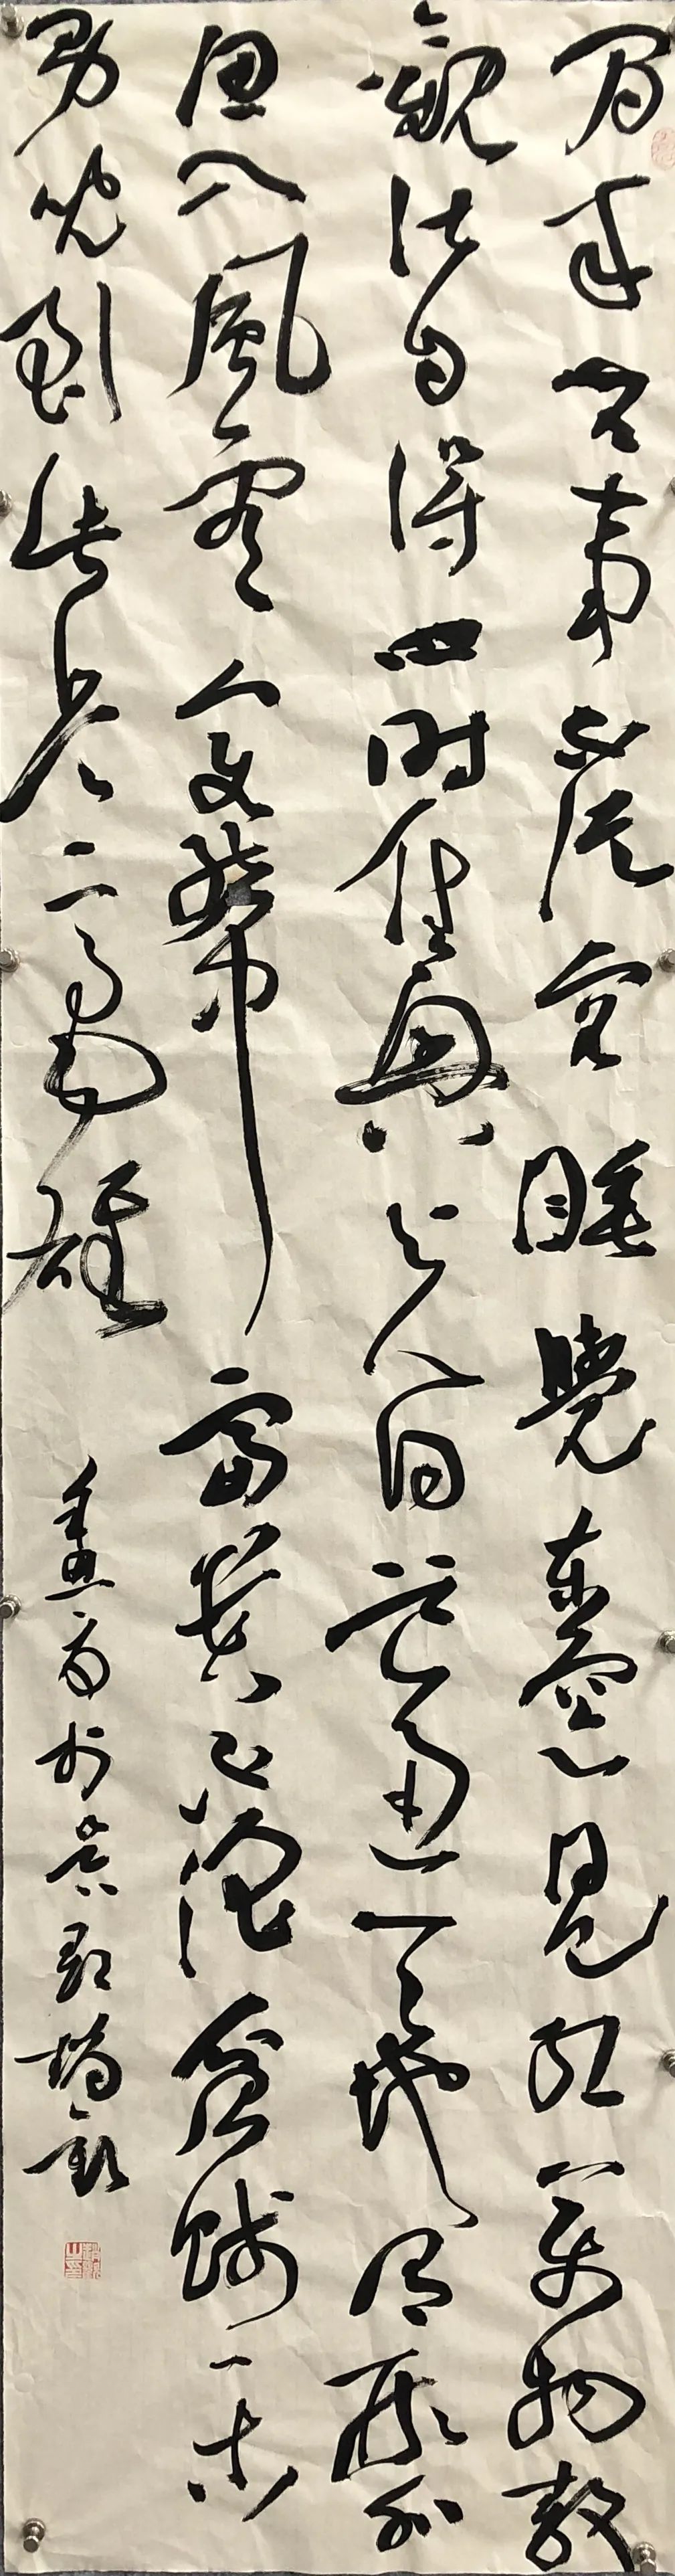 閒来無事不從容睡覺東窗日已红萬物静
觀皆自得四時佳興与人同道通天地有形外
思入風雲變態中富貴不淫貧賤樂
男児到此是豪雄